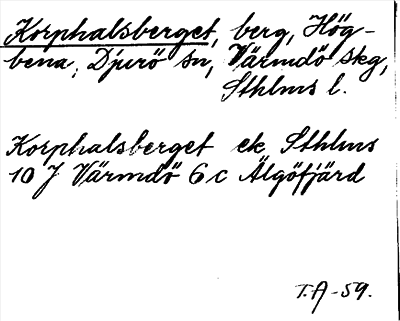 Korphalsberget, berg, Hög-
bena, Djurö sn, Värmdö skg,
Sthlms l.
Korphalsberget ek Sthlms
10 J Värmdö 6 c Älgöfjärd
T.A-59.